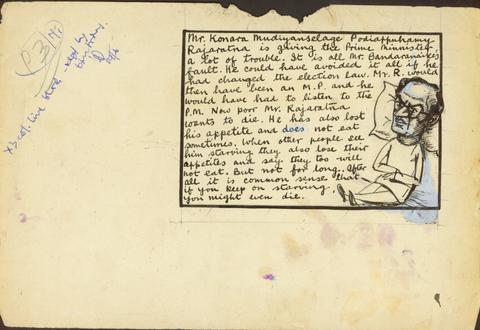 Mr. Konara Mudiyanselage Podiappuhamy
Rajaratna is giving the Prime Minister
a lot of trouble. It is all Mr. Bandaranaike's
fault. He could have avoided it all if he
had changed the election law. Mr. R. would
then have been an M.P. and he
would have had to listen to the
P.M. Now poor Mr. Rajaratna
wants to die. He has also lost
his appetite and does not eat
sometimes. When other people see
him starving they also lose their
appetites and say they too will
not eat. But not for long. After
all it is common sense that
if you keep on starving,
you might even die.
X3 col. line block